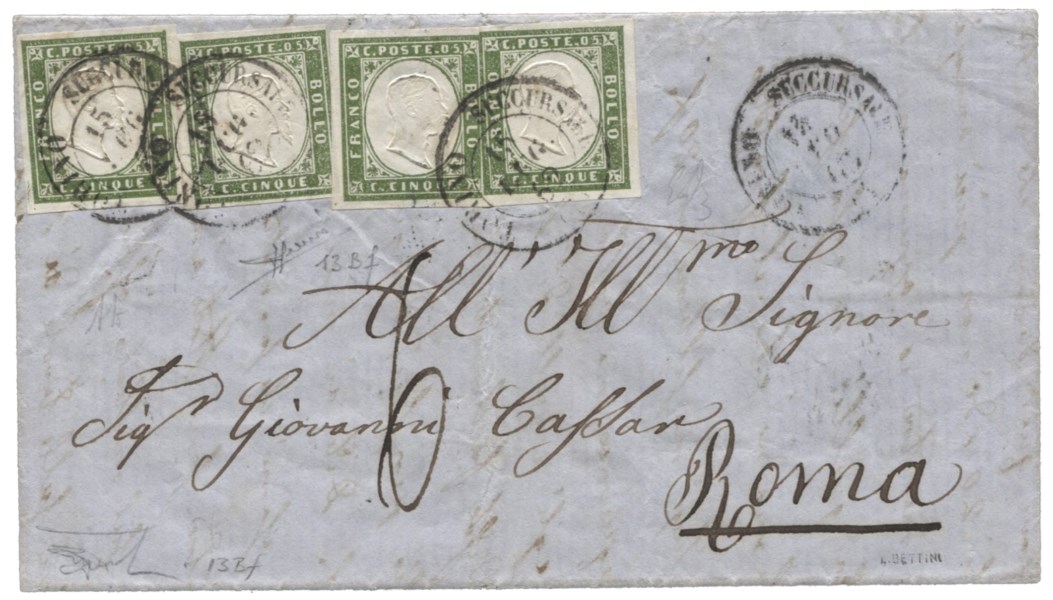 C. POSTE. 05 C. POSTE. 05 C. POSTE. 05 C. POSTE. 05
FRANCO BOLLO FRANCO BOLLO FRANCO BOLLO FRANCO BOLLO
C. CINQUE C. CINQUE C. CINQUE C. CINQUE
SUCCURSALE
SUCCURSALE
SUCCURSALE
15
13 Bf
All' Ill.mo Signore
Sigr Giovanni Cassar
Roma
13 Bf
E. DETTINI